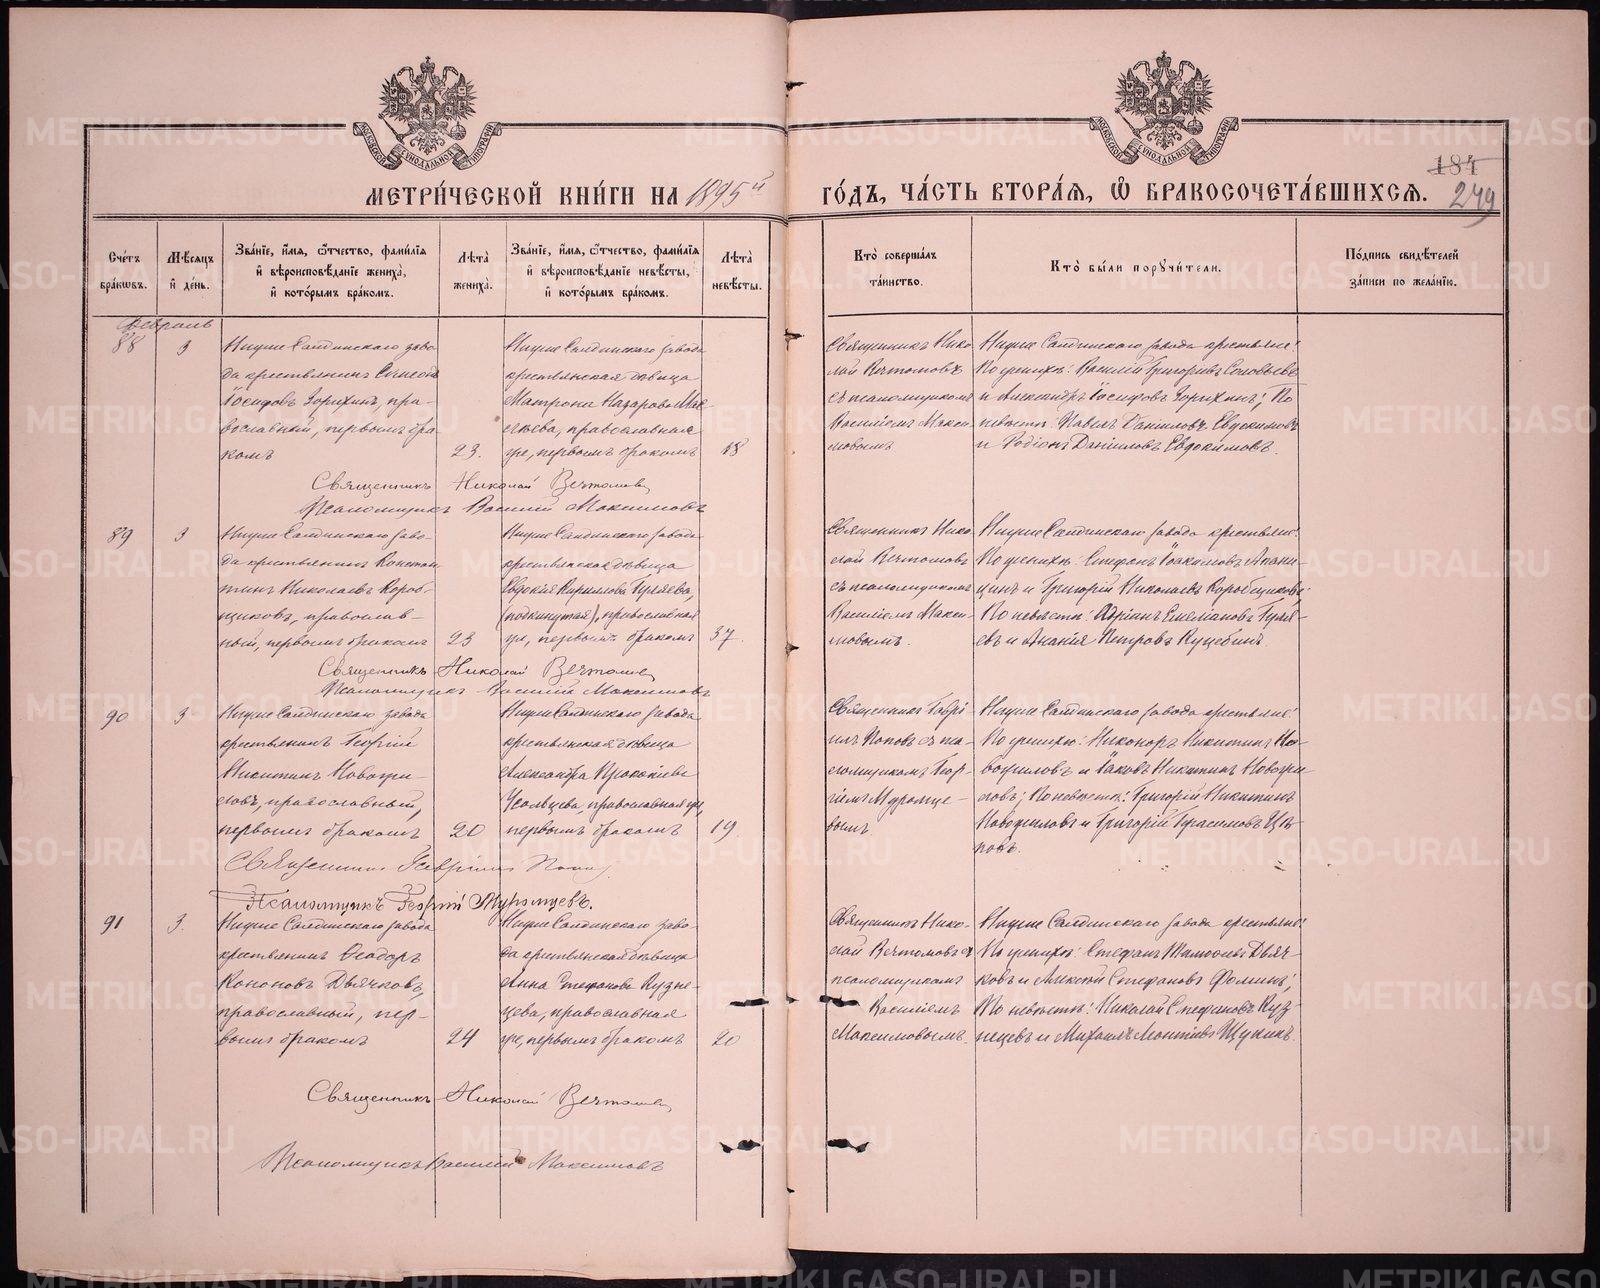 МЕТРИ́ЧЕСКОЙ КНИ́ГИ НА 1895й
ГО́ДЪ, ЧА́СТЬ ВТОРА́Я, Ѡ БРАКОСОЧЕТА́ВШИХСЯ.
184
249
Сче́тъ бра́кѡвъ.
Мѣ́сяцъ и де́нь.
Зва́нїе, и́мя, ѻ́тчество, фами́лїя и вѣроисповѣ́данїе жениха̀, и кото́рымъ бра́комъ.
Лѣ́та жениха̀.
Зва́нїе, и́мя, ѻ́тчество, фами́лїя и вѣроисповѣ́данїе невѣ́сты, и кото́рымъ бра́комъ.
Лѣ́та невѣ́сты.
Кто̀ соверша́лъ та́инство.
Кто̀ бы́ли поручи́тели.
По́дпись свидѣ́телей за́писи по жела́нїю.
Февраль
88
3
Нижне Салдинскаго заво
да крестьянинъ Симеонъ
Іосифовъ Зорихинъ, пра-
вославный, первымъ бра
комъ
23.
Нижне Салдинскаго завода
крестьянская дѣвица
Матрона Назарова Мак
сіева, православная
же, первымъ бракомъ
18
Священникъ Нико
лай Вечтомовъ
съ псаломщикомъ
Василіемъ Макси
мовымъ
Нижне Салдинскаго завода крестьяне:
По женихѣ: Василій Григоріевъ Соловьевъ
и Александръ Іосифовъ Зорихинъ; По
невѣстѣ: Павелъ Даниловъ Евдокимовъ
и Родіонъ Даниловъ Евдокимовъ.
Священникъ Николай Вечтомовъ
Псаломщикъ Василій Максимовъ
89
3
Нижне Салдинскаго заво-
да крестьянинъ Констан
тинъ Николаевъ Короб-
щиковъ, православ-
ный, первымъ бракомъ
23
Нижне Салдинскаго завода
крестьянская дѣвица
Евдокія Кириллова Гуляева,
(подкинутая), православная
же, первымъ бракомъ
37
Священникъ Нико
лай Вечтомовъ
съ псаломщикомъ
Василіемъ Макси-
мовымъ.
Нижне Салдинскаго завода крестьяне:
По женихѣ: Стефанъ Іоакимовъ
и Григорій Николаевъ Коробщиковъ
По невѣстѣ: Адріанъ Емеліановъ Гуля-
евъ и Ананія Петровъ
Священникъ Николай Вечтомовъ
Псаломщикъ Василій Максимовъ
90
3
Нижне Салдинскаго завода
крестьянинъ Георгій
Никитинъ Новожи-
ловъ, православный,
первымъ бракомъ
20
Нижне Салдинскаго завода
крестьянская дѣвица
Александра Прокопіева
Усольцева, православная же,
первымъ бракомъ
19
Священникъ Гаврі-
илъ Поповъ съ пса-
ломщикомъ Геор-
гіемъ Муромце-
вымъ.
Нижне Салдинскаго завода крестьяне:
По женихѣ: Никоноръ Никитинъ
и Іаковъ Никитинъ Новожи
ловъ; По невѣстѣ: Григорій Никитинъ
Новожиловъ и Григорій Герасимовъ Цѣ
повъ.
Священникъ Гавріилъ Поповъ
Псаломщикъ Георгій Муромцевъ.
91
3.
Нижне Салдинскаго завода
крестьянинъ Ѳеодоръ
Кононовъ Дьячковъ,
православный, пер-
вымъ бракомъ
24
Нижне Салдинскаго заво-
да крестьянская дѣвица
Анна Стефанова Кузне-
цева, православная
же, первымъ бракомъ
20
Священникъ Нико-
лай Вечтомовъ съ
псаломщикомъ
Василіемъ
Максимовымъ.
Нижне Салдинскаго завода крестьяне:
По женихѣ: Стефанъ Дьяч-
ковъ и Алексій Стефановъ Фоминъ;
По невѣстѣ: Николай Стефановъ Куз
нецевъ и Михаилъ Щукинъ.
Священникъ Николай Вечтомовъ
Псаломщикъ Василій Максимовъ
METRIKI.GASO-URAL.RU